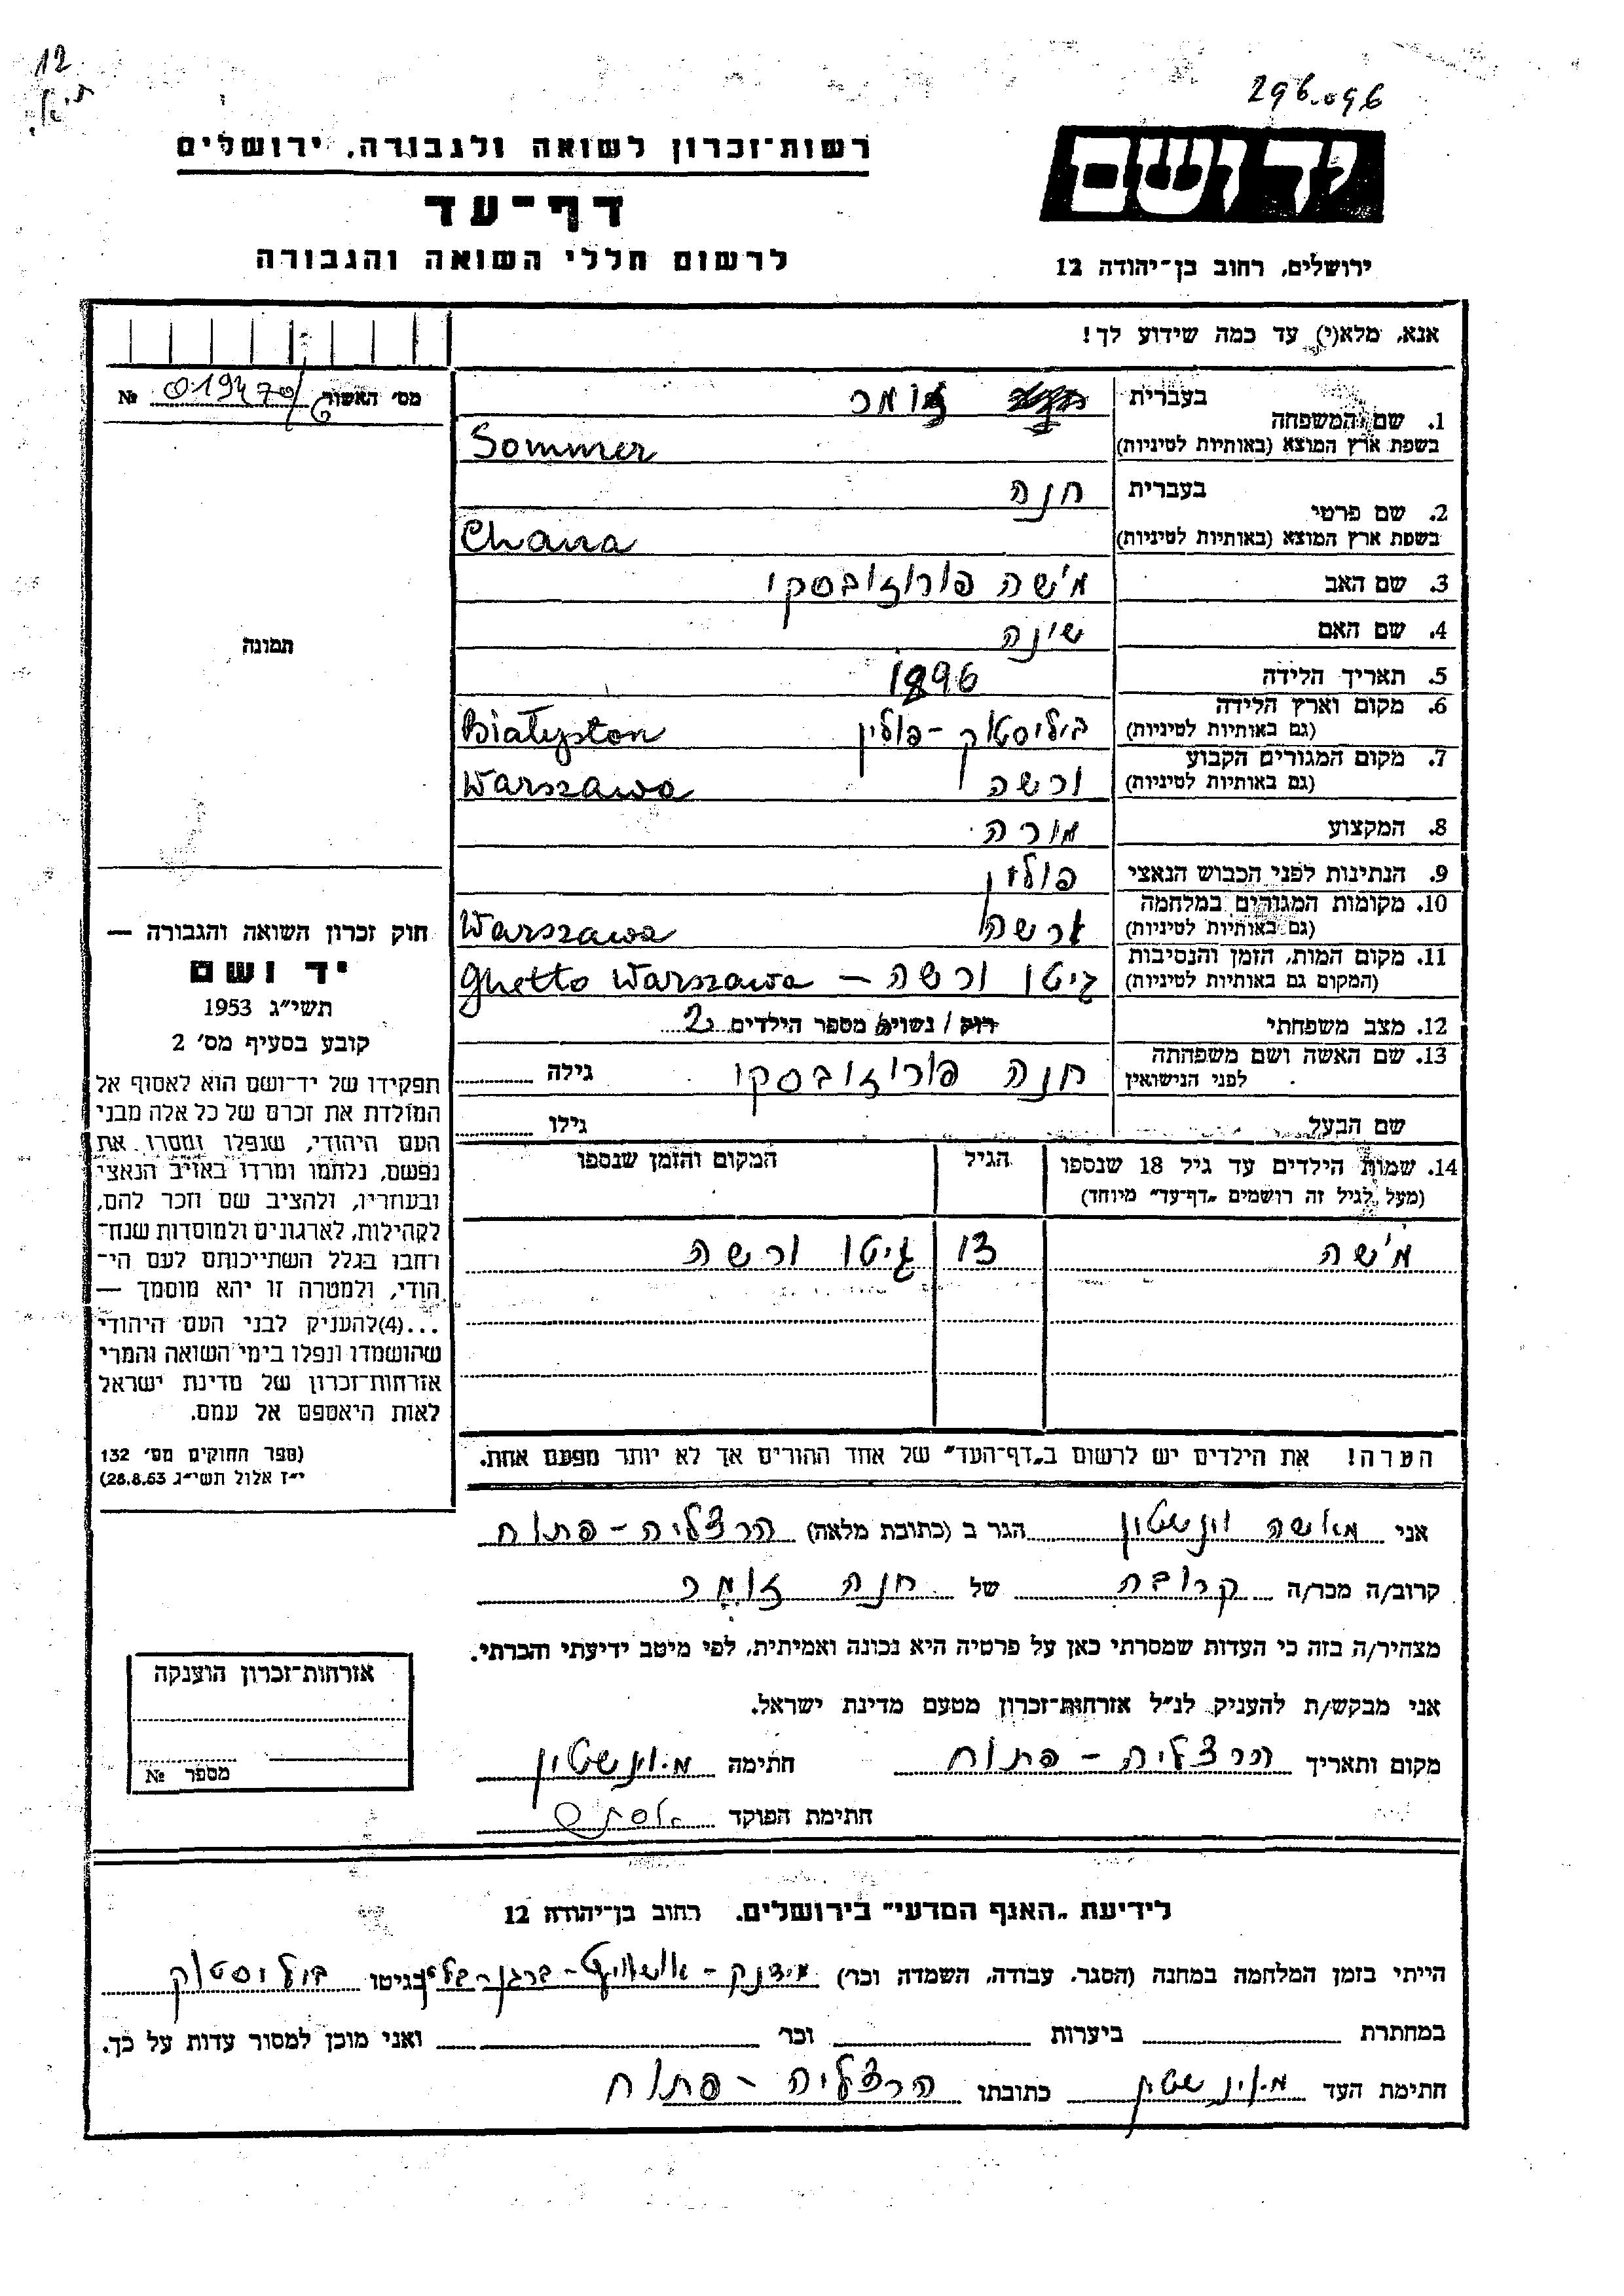 12
296.096
רשות־זכרון לשואה ולגבורה, ירושלים
יד ושם
דף־עד
לרשום חללי השואה והגבורה
ירושלים, רחוב בן־יהודה 12
אנא, מלא(י) עד כמה שידוע לך!
מס' האשור 019470/6 №
1. שם המשפחה
בעברית זומר
בשפת ארץ המוצא (באותיות לטיניות) Sommer
2. שם פרטי
בעברית חנה
בשפת ארץ המוצא (באותיות לטיניות) Chana
3. שם האב משה פורוזובסקי
4. שם האם שינה
תמונה
5. תאריך הלידה 1896
6. מקום וארץ הלידה
(גם באותיות לטיניות) ביליסטוק - פולין Białyston
7. מקום המגורים הקבוע
(גם באותיות לטיניות) ורשה Warszawa
8. המקצוע מורה
9. הנתינות לפני הכבוש הנאצי פולין
10. מקומות המגורים במלחמה
(גם באותיות לטיניות) ורשה Warszawa
11. מקום המות, הזמן והנסיבות
(המקום גם באותיות לטיניות) גיטו ורשה – Ghetto Warszawa
12. מצב משפחתי רוק / נשוי/ מספר הילדים 2
13. שם האשה ושם משפחתה
לפני הנישואין חנה פורוזובסקי גילה
שם הבעל גילו
14. שמות הילדים עד גיל 18 שנספו הגיל המקום והזמן שנספו
(מעל לגיל זה רושמים „דף־עד" מיוחד)
משה 13 גיטו ורשה
חוק זכרון השואה והגבורה —
יד ושם
תשי"ג 1953
קובע בסעיף מס' 2
תפקידו של יד־ושם הוא לאסוף אל
המולדת את זכרם של כל אלה מבני
העם היהודי, שנפלו ומסרו את
נפשם, נלחמו ומרדו באויב הנאצי
ובעוזריו, ולהציב שם וזכר להם,
לקהילות, לארגונים ולמוסדות שנח־
רבו בגלל השתייכותם לעם הי־
הודי, ולמטרה זו יהא מוסמך —
...(4)להעניק לבני העם היהודי
שהושמדו ונפלו בימי השואה והמרי
אזרחות־זכרון של מדינת ישראל
לאות היאספם אל עמם.
(ספר החוקים מס' 132
י"ז אלול תשי"ג 28.8.53)
הערה! את הילדים יש לרשום ב„דף־העד" של אחד ההורים אך לא יותר מפעם אחת.
אני מאשה וינשטין הגר ב (כתובת מלאה) הרצליה - פתוח
קרוב/ה מכר/ה קרובה של חנה זומר
מצהיר/ה בזה כי העדות שמסרתי כאן על פרטיה היא נכונה ואמיתית, לפי מיטב ידיעתי והכרתי.
אני מבקש/ת להעניק לנ"ל אזרחות־זכרון מטעם מדינת ישראל.
מקום ותאריך הרצליה - פתוח חתימה מ. וינשטין
חתימת הפוקד
אזרחות־זכרון הוענקה
מספר №
לידיעת „האגף המדעי" בירושלים, רחוב בן־יהודה 12
הייתי בזמן המלחמה במחנה (הסגר, עבודה, השמדה וכו') מידנק - אושויץ - ברגן - בלזן בגיטו ביליסטוק
במחתרת ביערות וכו' ואני מוכן למסור עדות על כך.
חתימת העד מ. וינשטין כתובתו הרצליה - פתוח